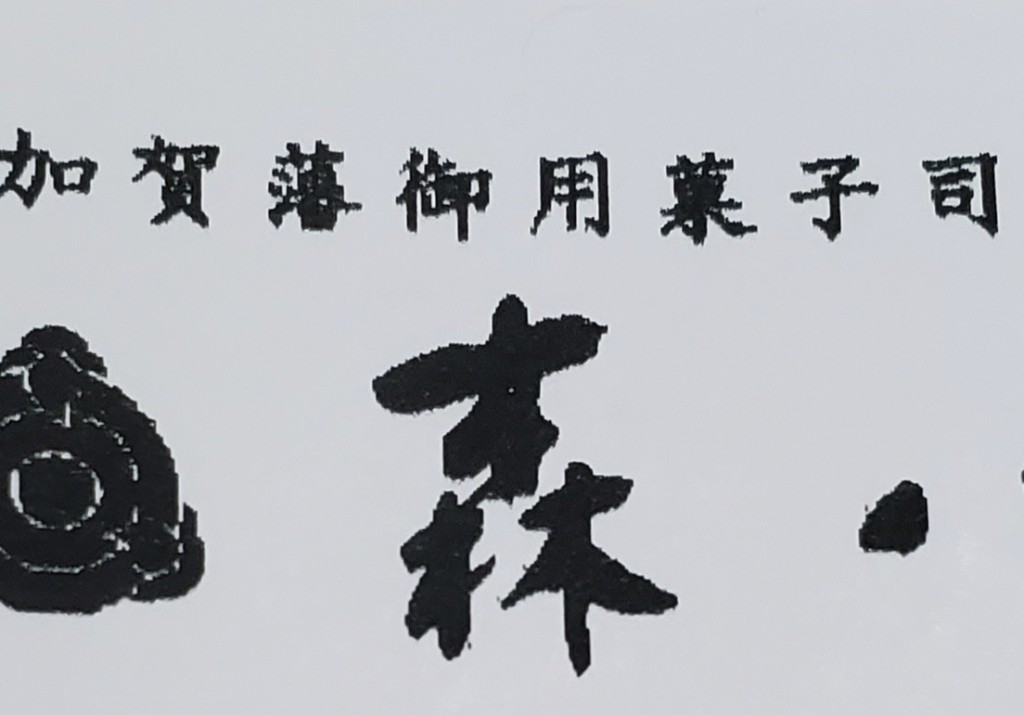 加賀藩御用菓子司
森